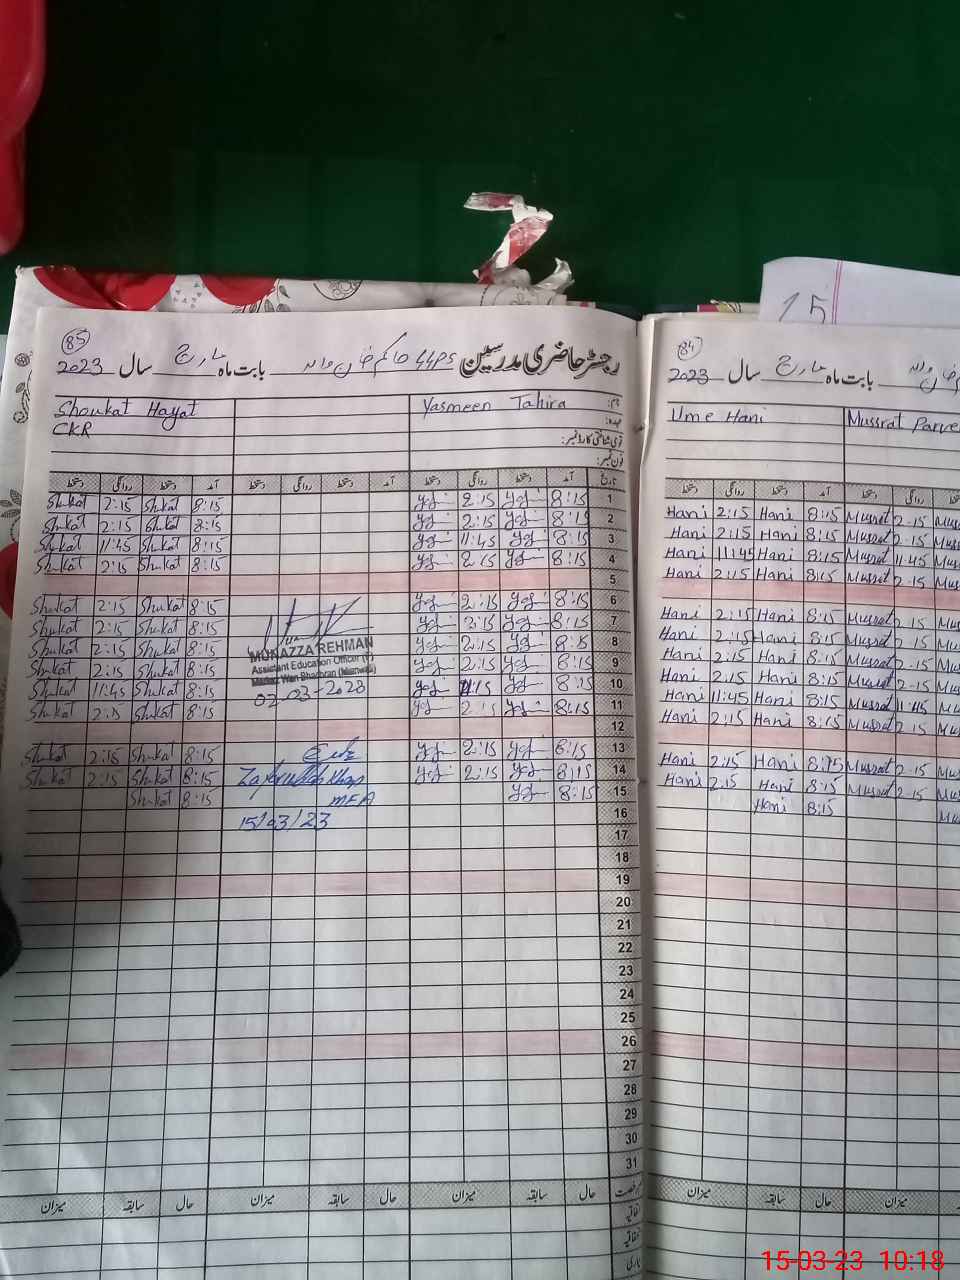 85
رجسٹر حاضری مدرسین GGPS حاکم خان والہ بابت ماہ مارچ سال 2023
نام: Yasmeen Tahira
Shoukat Hayat
عہدہ:
CKR
قومی شناختی کارڈ نمبر:
فون نمبر:
تاریخ آمد دستخط روانگی دستخط آمد دستخط روانگی دستخط آمد دستخط روانگی دستخط
Shukat 2:15 Shukat 8:15 2:15 8:15 1
Shukat 2:15 Shukat 8:15 2:15 8:15 2
Shukat 11:45 Shukat 8:15 11:45 8:15 3
Shukat 2:15 Shukat 8:15 2:15 8:15 4
5
Shukat 2:15 Shukat 8:15 2:15 8:15 6
Shukat 2:15 Shukat 8:15 2:15 8:15 7
Shukat 2:15 Shukat 8:15 2:15 8:15 8
Shukat 2:15 Shukat 8:15 2:15 8:15 9
Shukat 11:45 Shukat 8:15 8:15 10
Shukat 2:15 Shukat 8:15 2:15 8:15 11
12
Shukat 2:15 Shukat 8:15 2:15 8:15 13
Shukat 2:15 Shukat 8:15 2:15 8:15 14
Shukat 8:15 8:15 15
16
17
18
19
20
21
22
23
24
25
26
27
28
29
30
31
MUNAZZA REHMAN
Assistant Education Officer (W)
Markaz Wan Bhachran (Mianwali)
02-03-2023
MEA
15/03/23
حال سابقہ میزان حال سابقہ میزان حال سابقہ میزان
اتفاقیہ
15
84
بابت ماہ مارچ سال 2023
Ume Hani
Mussrat Parve
آمد دستخط روانگی دستخط
Hani 2:15 Hani 8:15 Mussrat 2:15
Hani 2:15 Hani 8:15 Mussrat 2:15
Hani 11:45 Hani 8:15 Mussrat 11:45
Hani 2:15 Hani 8:15 Mussrat 2:15
Hani 2:15 Hani 8:15 Mussrat 2:15
Hani 2:15 Hani 8:15 Mussrat 2:15
Hani 2:15 Hani 8:15 Mussrat 2:15
Hani 2:15 Hani 8:15 Mussrat 2:15
Hani 11:45 Hani 8:15 Mussrat 11:45
Hani 2:15 Hani 8:15 Mussrat 2:15
Hani 2:15 Hani 8:15 Mussrat 2:15
Hani 2:15 Hani 8:15 Mussrat 2:15
Hani 8:15
حال سابقہ میزان حال سابقہ
15-03-23 10:18